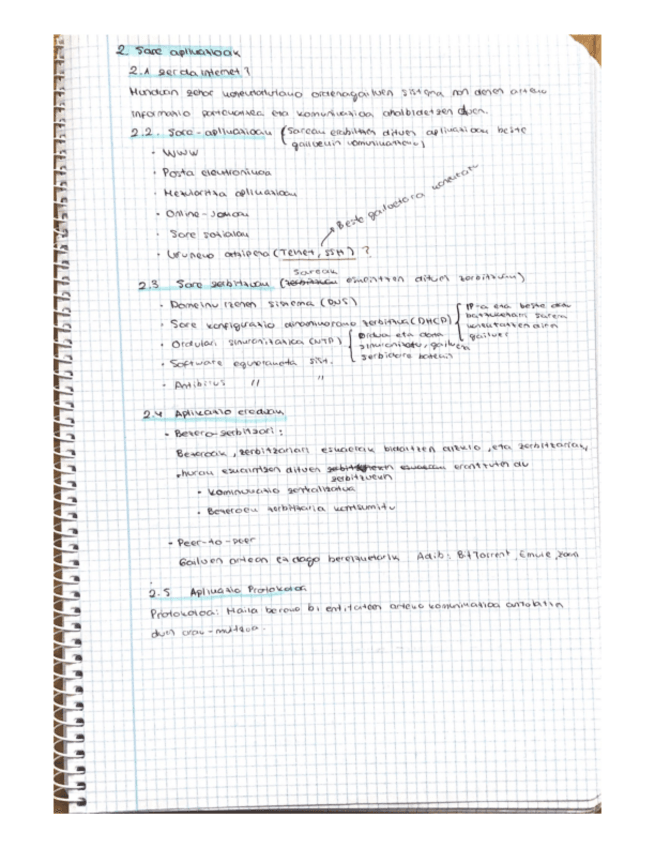 2. Sare aplikazioak
2.1 Zer da internet?
Munduan zehar konektatutako ordenagailuen sistema non denen artean
informazio partekatzea eta komunikatzea ahalbidetzen duen.
2.2. Sare-aplikazioak (Sarean erabiltzen dituen aplikazioak beste
gailuekin komunikatzeko)
• WWW
• Posta elektronikoa
• Mezularitza aplikazioak
• Online-Jokoak
• Sare sozialak
• Urruneko atzipena (Telnet, SSH) ?
Beste gailu batera konektatu
2.3 Sare zerbitzuak (Sareak eskaintzen dituen zerbitzuak)
• Domeinu izenen sistema (DNS)
• Sare konfigurazio dinamikorako zerbitzua (DHCP) IP-a eta beste datu
batzuk sarera
konektatzen diren
gailuei
• Ordulari sinkronizazioa (NTP) Ordua eta data
sinkronizatu, gailuen
zerbidore batekin
• Software eguneraketa sist.
• Antibirus " "
2.4 Aplikazio ereduak
• Bezero-zerbitzari:
Bezeroak, zerbitzariari eskaerak bidaltzen dizkio, eta zerbitzariak,
horau eskaintzen dituen zerbitzuekin erantzuten du
• Komunikazio zentralizatua
• Bezeroek zerbitzaria kontsumitu
• Peer-to-peer
Gailuen artean ez dago bereizketarik Adib: BitTorrent, Emule,
2.5 Aplikazio Protokoloa
Protokoloa: Maila bereko bi entitateen arteko komunikazioa antolatzen
duen arau-multzoa.